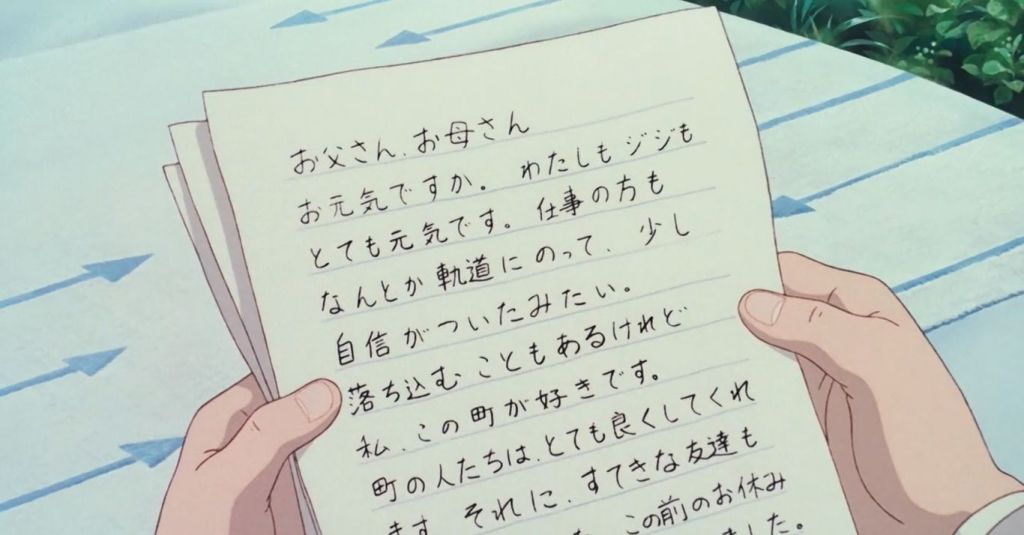 お父さん、お母さん
お元気ですか。わたしもジジも
とても元気です。仕事の方も
なんとか軌道にのって、少し
自信がついたみたい。
落ち込むこともあるけれど
私、この町が好きです。
町の人たちは、とても良くしてくれ
ます。それに、すてきな友達も
この前のお休み
ました。